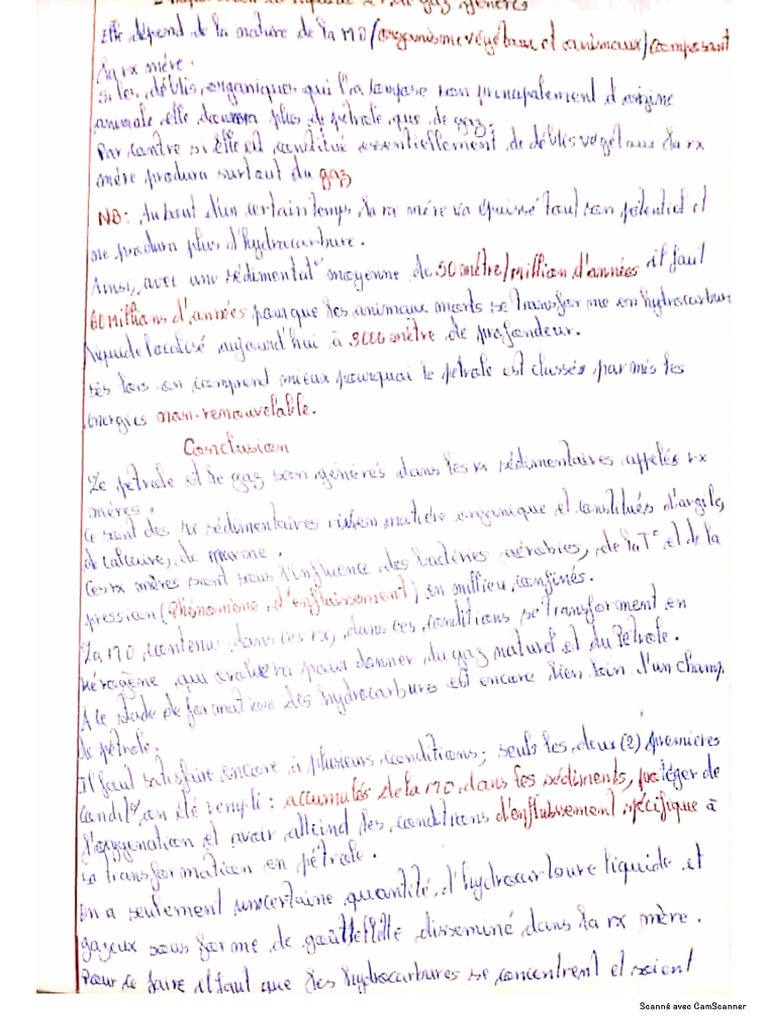 de gaz générés
Elle dépend de la nature de la MO (organisme végétaux et animaux) composant
la rx mère.
Si les déblis organiques qui l'a compose son principalement d'origine
animale elle donnera plus de pétrole que de gaz.
Par contre si elle est constitué essentiellement de déblis végétaux la rx
mère produra surtout du gaz
NB: Au bout d'un certain temps la rx mère va épuissé tout son potentiel et
ne produra plus d'hydrocarbure.
Ainsi, avec une sédimentat° moyenne de 50 mètre/million d'années il faut
60 Millions d'années pour que les animaux morts se transforme en hydrocarbure
liquide localisé aujourd'hui à 3000 mètre de profondeur.
Dès lors on comprend mieux pourquoi le pétrole est classés parmis les
énergies non-renouvelable.
Conclusion
Le pétrole et le gaz son générés dans les rx sédimentaires appelés rx
mères.
Ce sont des rx sédimentaires riche en matière organique et constitués d'argile,
de calcaire, de marne.
Ces rx mères sont sous l'influence des bactéries aérobies, de la T° et de la
pression (Phénomène d'enfluissement) en millieu confinés.
La MO contenu dans ces rx, dans ces conditions se transforment en
kérogène qui évoluera pour donner du gaz naturel et du Pétrole.
A ce stade de formation des hydrocarbures est encore bien loin d'un champ
de pétrole.
Il faut satisfaire encore à plusieurs conditions; seuls les deux (2) premières
condit° on été rempli: accumulés de la MO dans les sédiments, protéger de
l'oxygénation et avoir atteind des conditions d'enfluissement spécifique à
sa transformation en pétrole.
On a seulement une certaine quantité d'hydrocarbure liquide et
gazeux sous forme de gouttelette disseminé dans la rx mère.
Pour ce faire il faut que les hydrocarbures se concentrent et soient
Scanné avec CamScanner